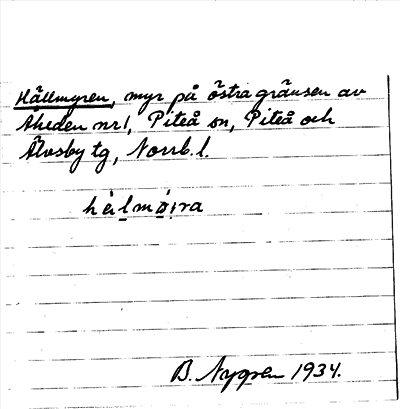 Hällmyren, myr på östra gränsen av
Åheden nr 1, Piteå sn, Piteå och
Älvsby tg, Norrb. l.
hèlmø̀ıra
B. Nygren 1934.